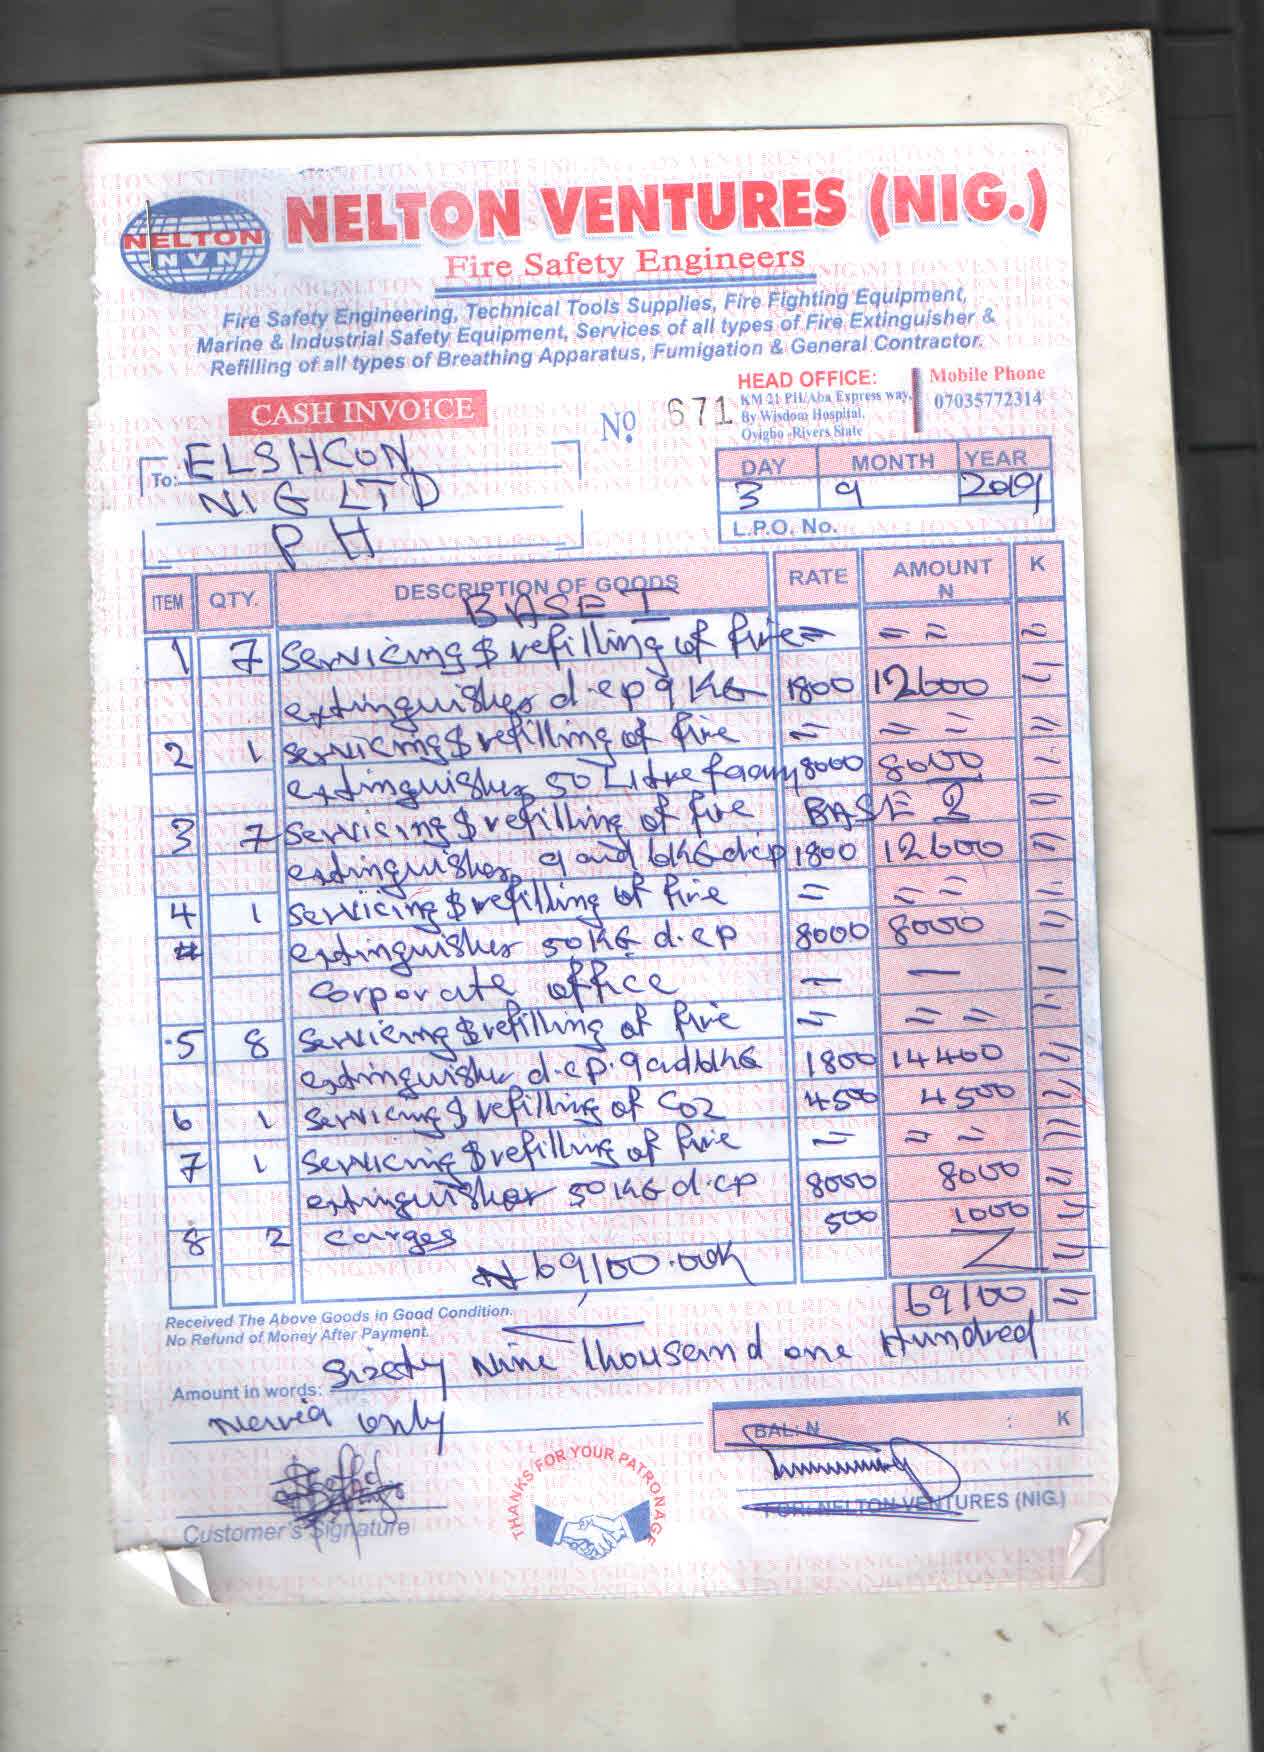 NELTON VENTURES (NIG.)
NELTON
NVN
Fire Safety Engineers
Fire Safety Engineering, Technical Tools Supplies, Fire Fighting Equipment,
Marine & Industrial Safety Equipment, Services of all types of Fire Extinguisher &
Refilling of all types of Breathing Apparatus, Fumigation & General Contractor.
CASH INVOICE
No. 671
HEAD OFFICE:
KM 21 PH/Aba Express way,
By Wisdom Hospital,
Oyigbo -Rivers State
Mobile Phone
07035772314
To: ELSHCON
NIG LTD
PH
DAY MONTH YEAR
3 9 2019
L.P.O. No.
ITEM QTY. DESCRIPTION OF GOODS RATE AMOUNT N K
BASE I
1 7 Servicing $ refilling of fire = = = =
extinguisher d.c.p 9 KG 1800 12600 =
2 1 servicing $ refilling of fire = = = =
extinguisher 50 Litre foam 8000 8000 =
3 7 Servicing $ refilling of fire BASE 2 =
extinguisher 9 and 6KG d.c.p 1800 12600 =
4 1 Servicing $ refilling of fire = = = =
extinguisher 50KG d.c.p 8000 8000 =
Corporate office — — —
5 8 Servicing $ refilling of fire = = = =
extinguisher d.c.p. 9 and 6KG 1800 14400 =
6 1 Servicing $ refilling of CO2 4500 4500 =
7 1 Servicing $ refilling of fire = = = =
extinguisher 50KG d.c.p 8000 8000 =
8 2 Carges 500 1000 =
₦69,100.00K
69100 =
Received The Above Goods in Good Condition.
No Refund of Money After Payment.
Amount in words: Sixty Nine Thousand one Hundred
Nervia only
BAL: N : K
Customer's Signature
THANKS FOR YOUR PATRONAGE
FOR: NELTON VENTURES (NIG.)